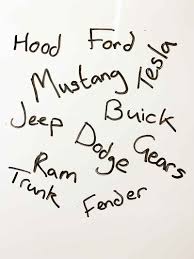 Hood Ford
Tesla
Mustang
Jeep Buick
Dodge
Gears
Ram
Trunk
Fender